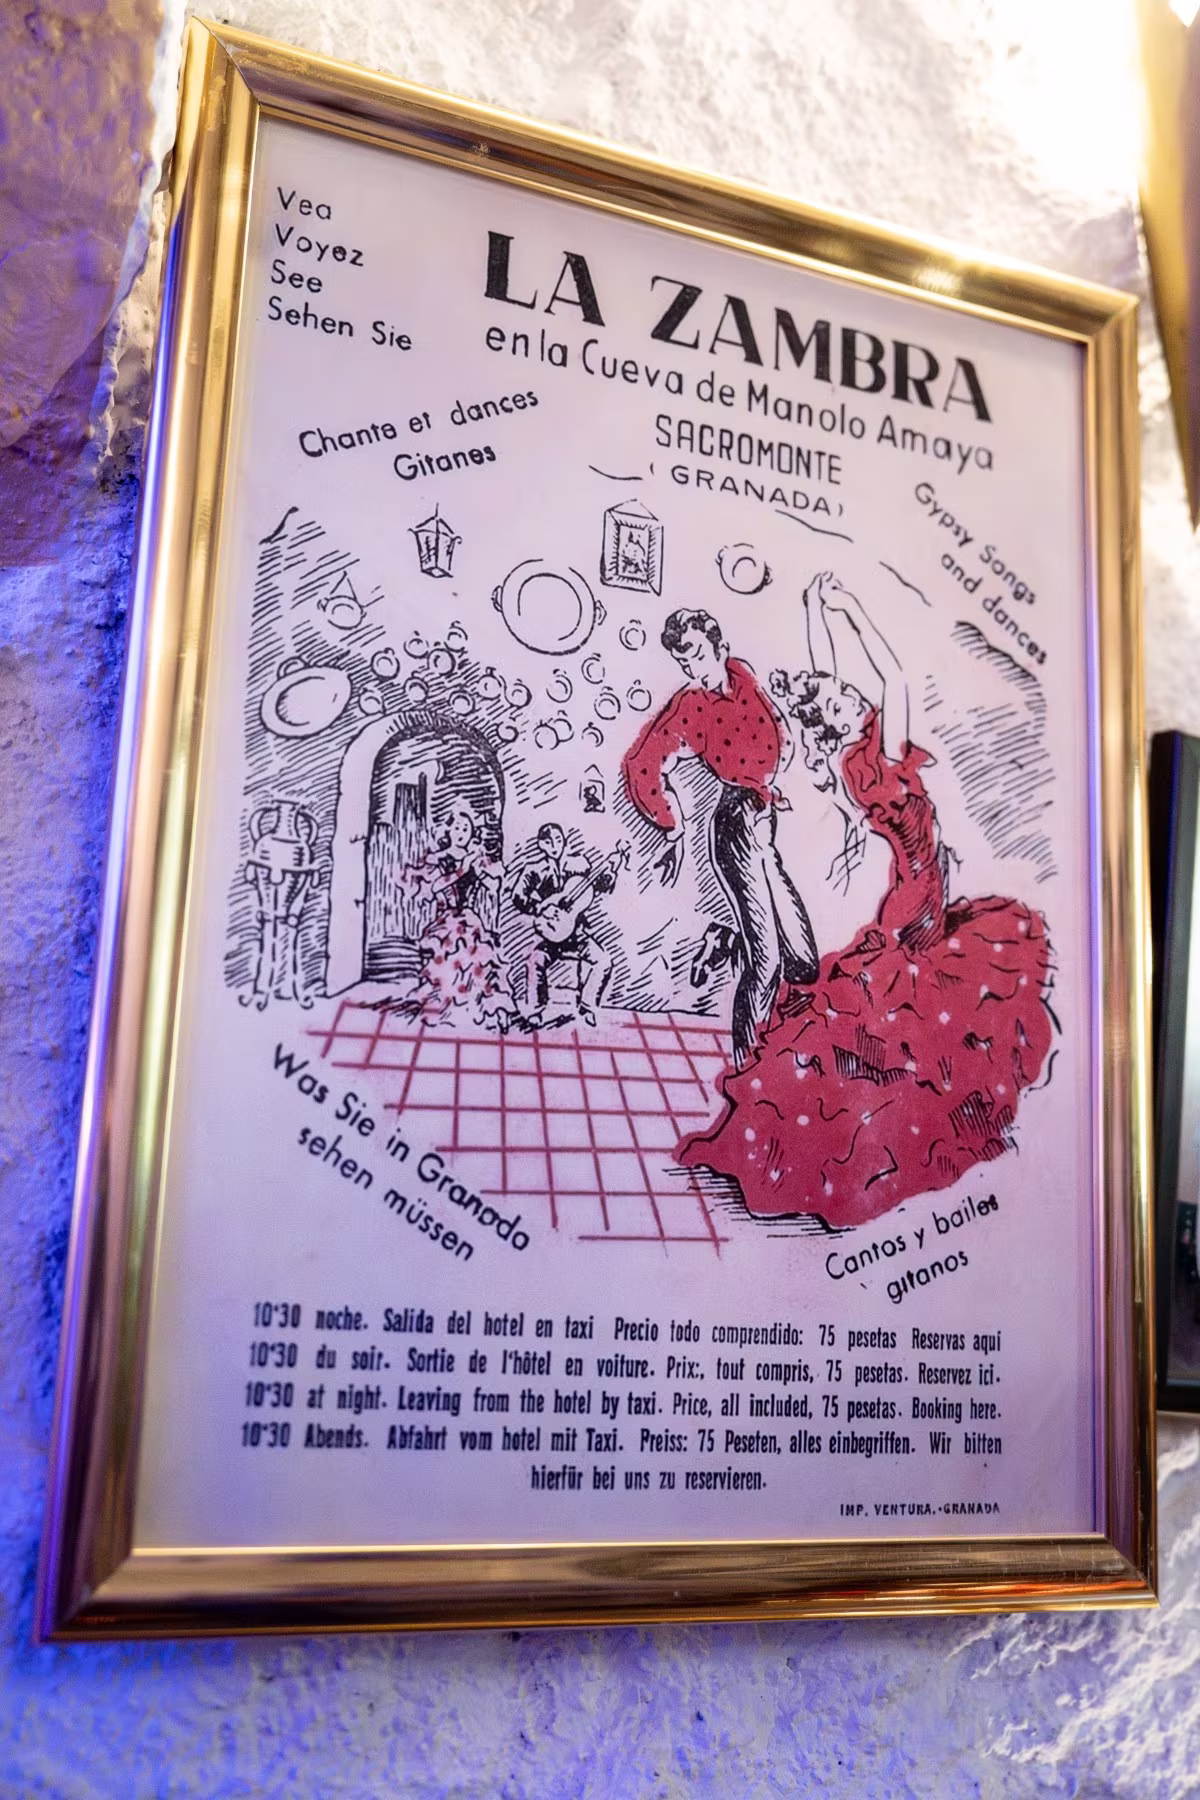 Vea
Voyez
See
Sehen Sie
LA ZAMBRA
en la Cueva de Manolo Amaya
SACROMONTE
(GRANADA)
Chants et dances
Gitanes
Gypsy Songs
and dances
Was Sie in Granada
sehen müssen
Cantos y bailes
gitanos
10'30 noche. Salida del hotel en taxi Precio todo comprendido: 75 pesetas Reservas aqui
10'30 du soir. Sortie de l'hôtel en voiture. Prix:, tout compris, 75 pesetas. Reservez ici.
10'30 at night. Leaving from the hotel by taxi. Price, all included, 75 pesetas. Booking here.
10'30 Abends. Abfahrt vom hotel mit Taxi. Preiss: 75 Peseten, alles einbegriffen. Wir bitten
hierfür bei uns zu reservieren.
IMP. VENTURA.-GRANADA